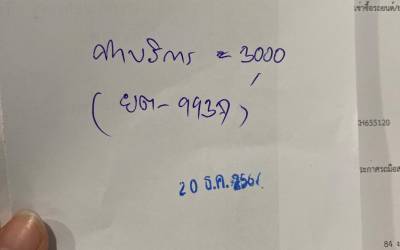 เช่าซื้อรถยนต์/ย
ค่าบริการ = 3000
(ยต-9937)
H655120
ระกาศรถมือส
20 ธ.ค. 256
84 ง